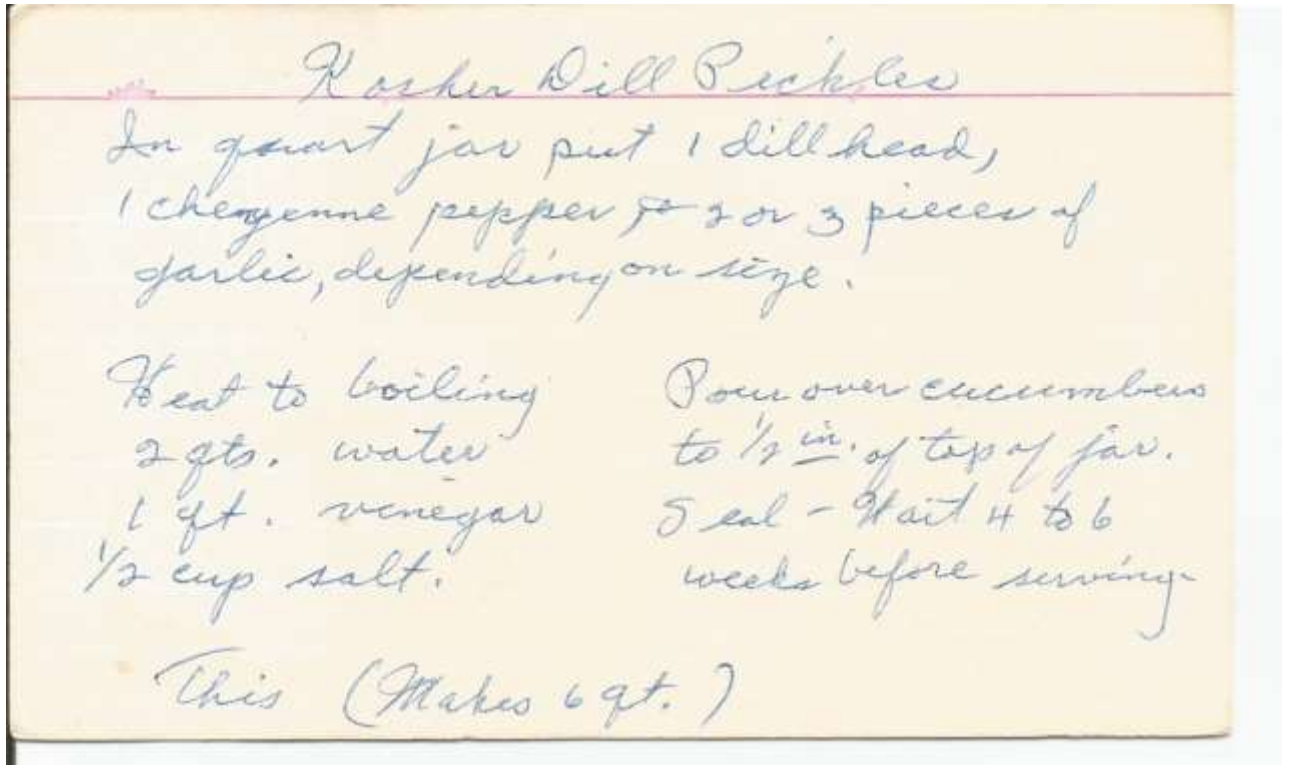 Kosher Dill Pickles
In quart jar put 1 dill head,
1 cheyenne pepper & 2 or 3 pieces of
garlic, depending on size.
Heat to boiling
2 qts. water
1 qt. vinegar
1/2 cup salt.
Pour over cucumbers
to 1/2 in. of top of jar.
Seal - Wait 4 to 6
weeks before serving-
This (Makes 6 qt.)